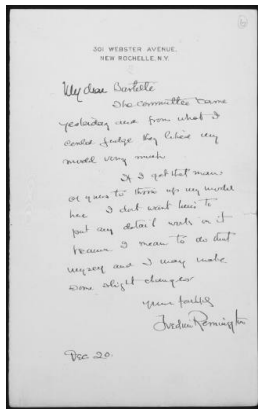 301 WEBSTER AVENUE,
NEW ROCHELLE, N.Y.
My dear Bartlett
The committee came
yesterday and from what I
could judge they liked my
model very much.
If I get that man
of yours to throw up my model
here I dont want him to
put any detail work on it
because I mean to do that
myself and I may make
some slight changes
yours faithfully
Frederic Remington
Dec 20.